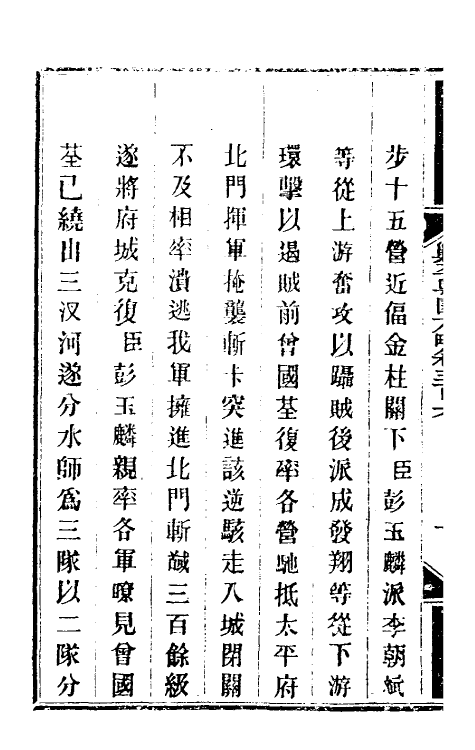 步十五營近偪金柱關下臣彭玉麟派李朝斌
等從上游奮攻以躡賊後派成發翔等從下游
環擊以遏賊前曾國荃復率各營馳抵太平府
北門揮軍掩襲斬卡突進該逆駭走入城閉關
不及相率潰逃我軍擁進北門斬馘三百餘級
遂將府城克復臣彭玉麟親率各軍瞭見曾國
荃已繞出三汊河遂分水師爲三隊以二隊分